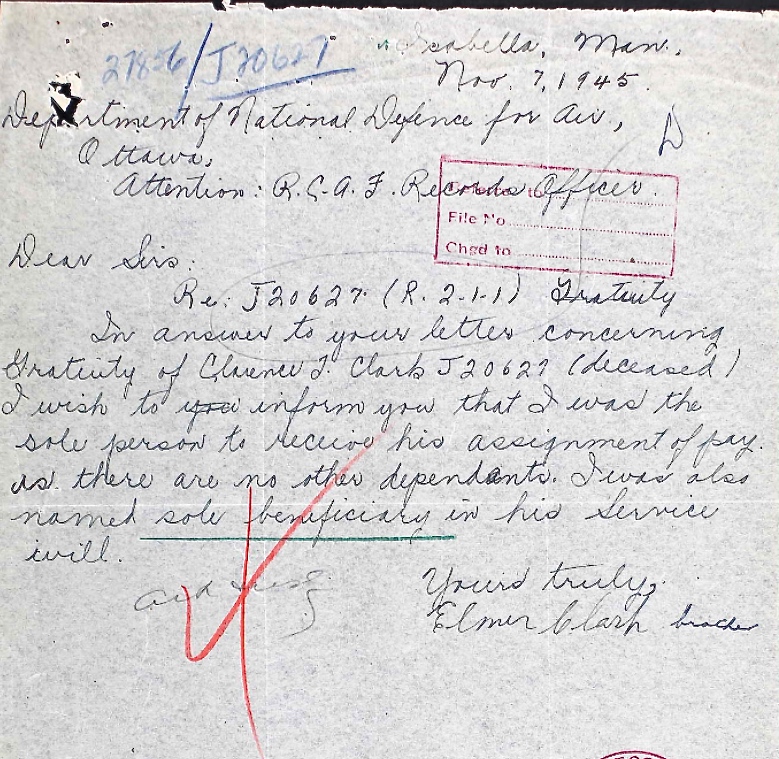 27856/J20627
Isabella, Man.,
Nov. 7, 1945.
Department of National Defence for Air,
Ottawa,
Attention: R.C.A.F. Records Officer.
File No
Chgd to
Dear Sirs:
Re: J20627 (R.2-1-1) Gratuity
In answer to your letter concerning
Gratuity of Clarence F. Clark J20627 (deceased)
I wish to you inform you that I was the
sole person to receive his assignment of pay.
as there are no other dependants. I was also
named sole beneficiary in his Service
will.
Yours truly,
Elmer Clark brother